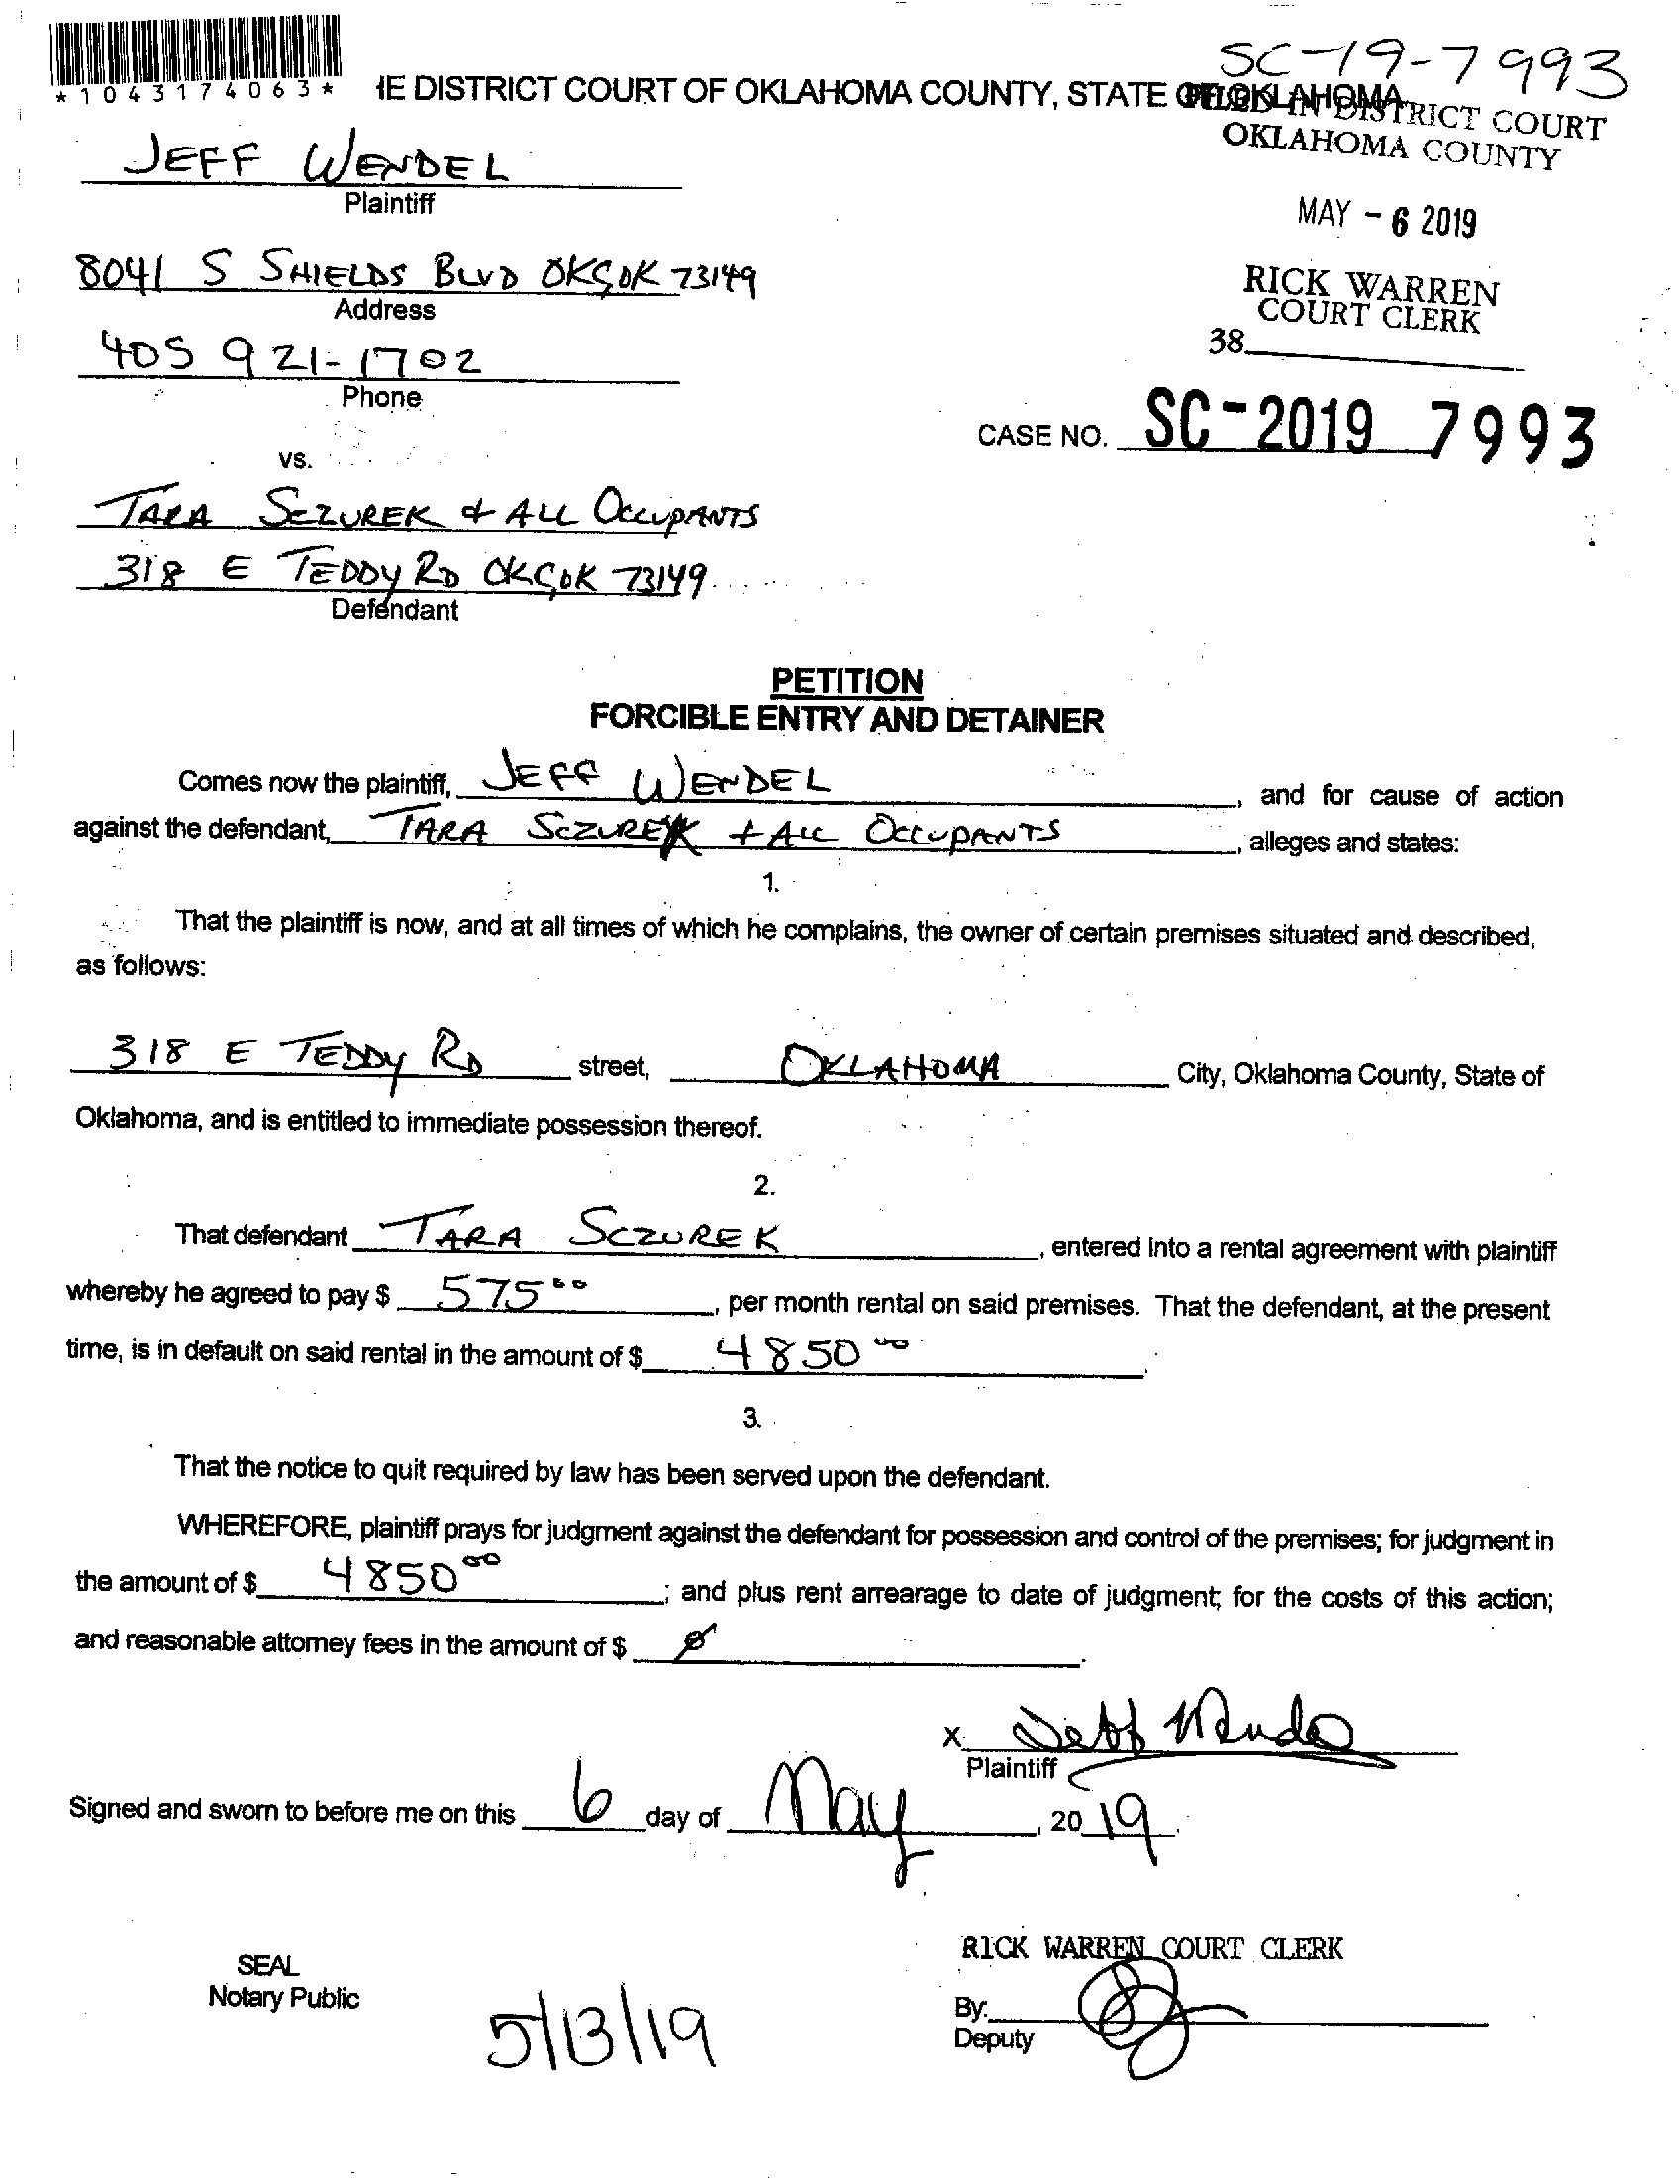 SC-19-7993
*1043174063*
IE DISTRICT COURT OF OKLAHOMA COUNTY, STATE OF OKLAHOMA
FILED IN DISTRICT COURT
OKLAHOMA COUNTY
JEFF WENDEL
Plaintiff
MAY - 6 2019
8041 S SHIELDS BLVD OKC, OK 73149
Address
RICK WARREN
COURT CLERK
38
405 921-1702
Phone
CASE NO. SC-2019 7993
vs.
TARA SCZUREK & ALL OCCUPANTS
318 E TEDDY RD OKC, OK 73149
Defendant
PETITION
FORCIBLE ENTRY AND DETAINER
Comes now the plaintiff, JEFF WENDEL, and for cause of action
against the defendant, TARA SCZUREK + ALL OCCUPANTS, alleges and states:
1.
That the plaintiff is now, and at all times of which he complains, the owner of certain premises situated and described,
as follows:
318 E TEDDY RD street, OKLAHOMA City, Oklahoma County, State of
Oklahoma, and is entitled to immediate possession thereof.
2.
That defendant TARA SCZUREK, entered into a rental agreement with plaintiff
whereby he agreed to pay $ 575 00, per month rental on said premises. That the defendant, at the present
time, is in default on said rental in the amount of $ 4850 00.
3.
That the notice to quit required by law has been served upon the defendant.
WHEREFORE, plaintiff prays for judgment against the defendant for possession and control of the premises; for judgment in
the amount of $ 4850 00; and plus rent arrearage to date of judgment; for the costs of this action;
and reasonable attorney fees in the amount of $ Ø.
X Jeff Wendel
Plaintiff
Signed and sworn to before me on this 6 day of May, 2019.
RICK WARREN COURT CLERK
SEAL
Notary Public
By:
Deputy
5/13/19